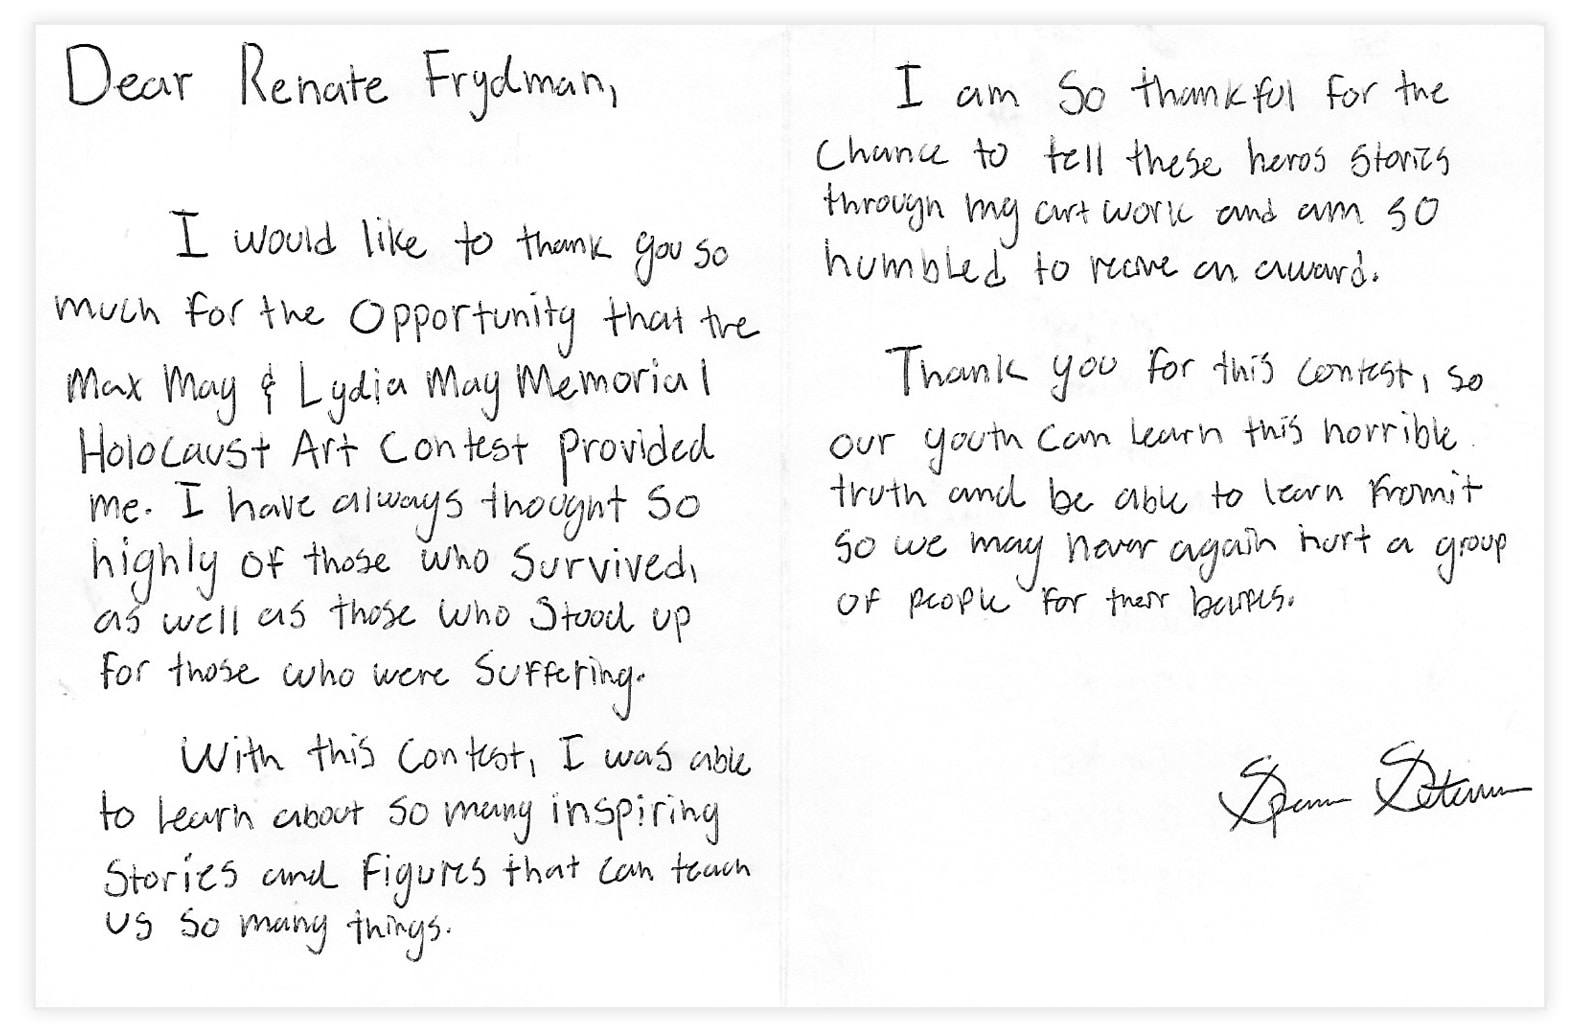 Dear Renate Frydman,
I would like to thank you so
much for the Opportunity that the
Max May & Lydia May Memorial
Holocaust Art Contest provided
me. I have always thought so
highly of those who survived,
as well as those who stood up
for those who were suffering.
With this contest, I was able
to learn about so many inspiring
stories and figures that can teach
us so many things.
I am so thankful for the
chance to tell these heros stories
through my art work and am so
humbled to recive an award.
Thank you for this contest, so
our youth can learn this horrible
truth and be able to learn from it
so we may never again hurt a group
of people for their